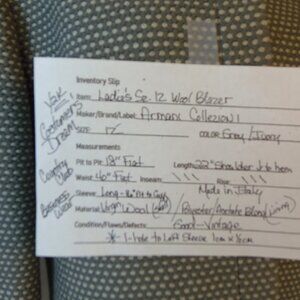 Inventory Slip
Item: Ladie's Sz. 12 Wool Blazer
Maker/Brand/Label: Armani Collezioni
SIZE 12 COLOR: Grey / Ivory
Measurements
Pit to Pit: 18" Flat Length: 22" Shoulder to hem
Waist: 40" Flat Inseam: Rise:
Sleeve: Long - Pit to Cuff Made in Italy
Material: Virgin Wool (shell) / Polyester/Acetate Blend
Condition/Flaws/Defects: Good - Vintage
* 1-hole to Left Sleeve 1cm x ½cm
Costumer's
Dream!
Country
Club
Business
Wear